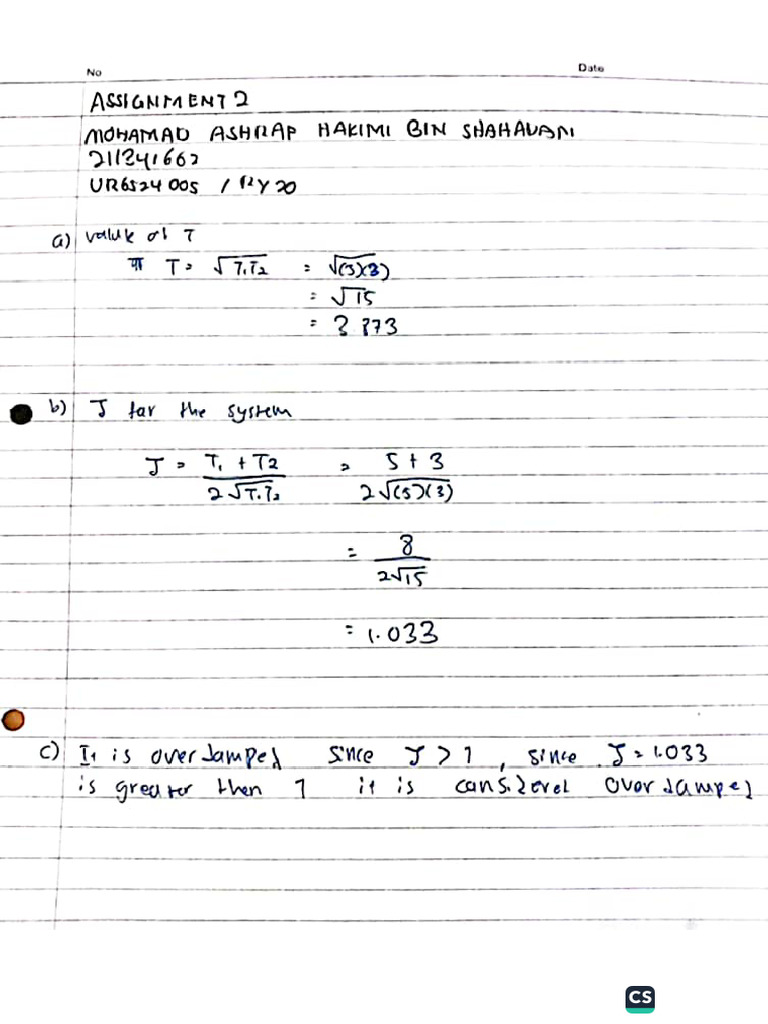 No
Date
ASSIGNMENT 2
MOHAMAD ASHRAP HAKIMI BIN SHAHAVANI
211241662
UR6524005 / RY20
a) value of T
T = √T₁T₂ = √(5)(3)
= √15
= 3.873
b) J for the system
J = T₁ + T₂ / 2√T₁T₂ = 5 + 3 / 2√(5)(3)
= 8 / 2√15
= 1.033
c) It is overdamped since J > 1, since J = 1.033
is greater then 1 it is considered overdamped
CS